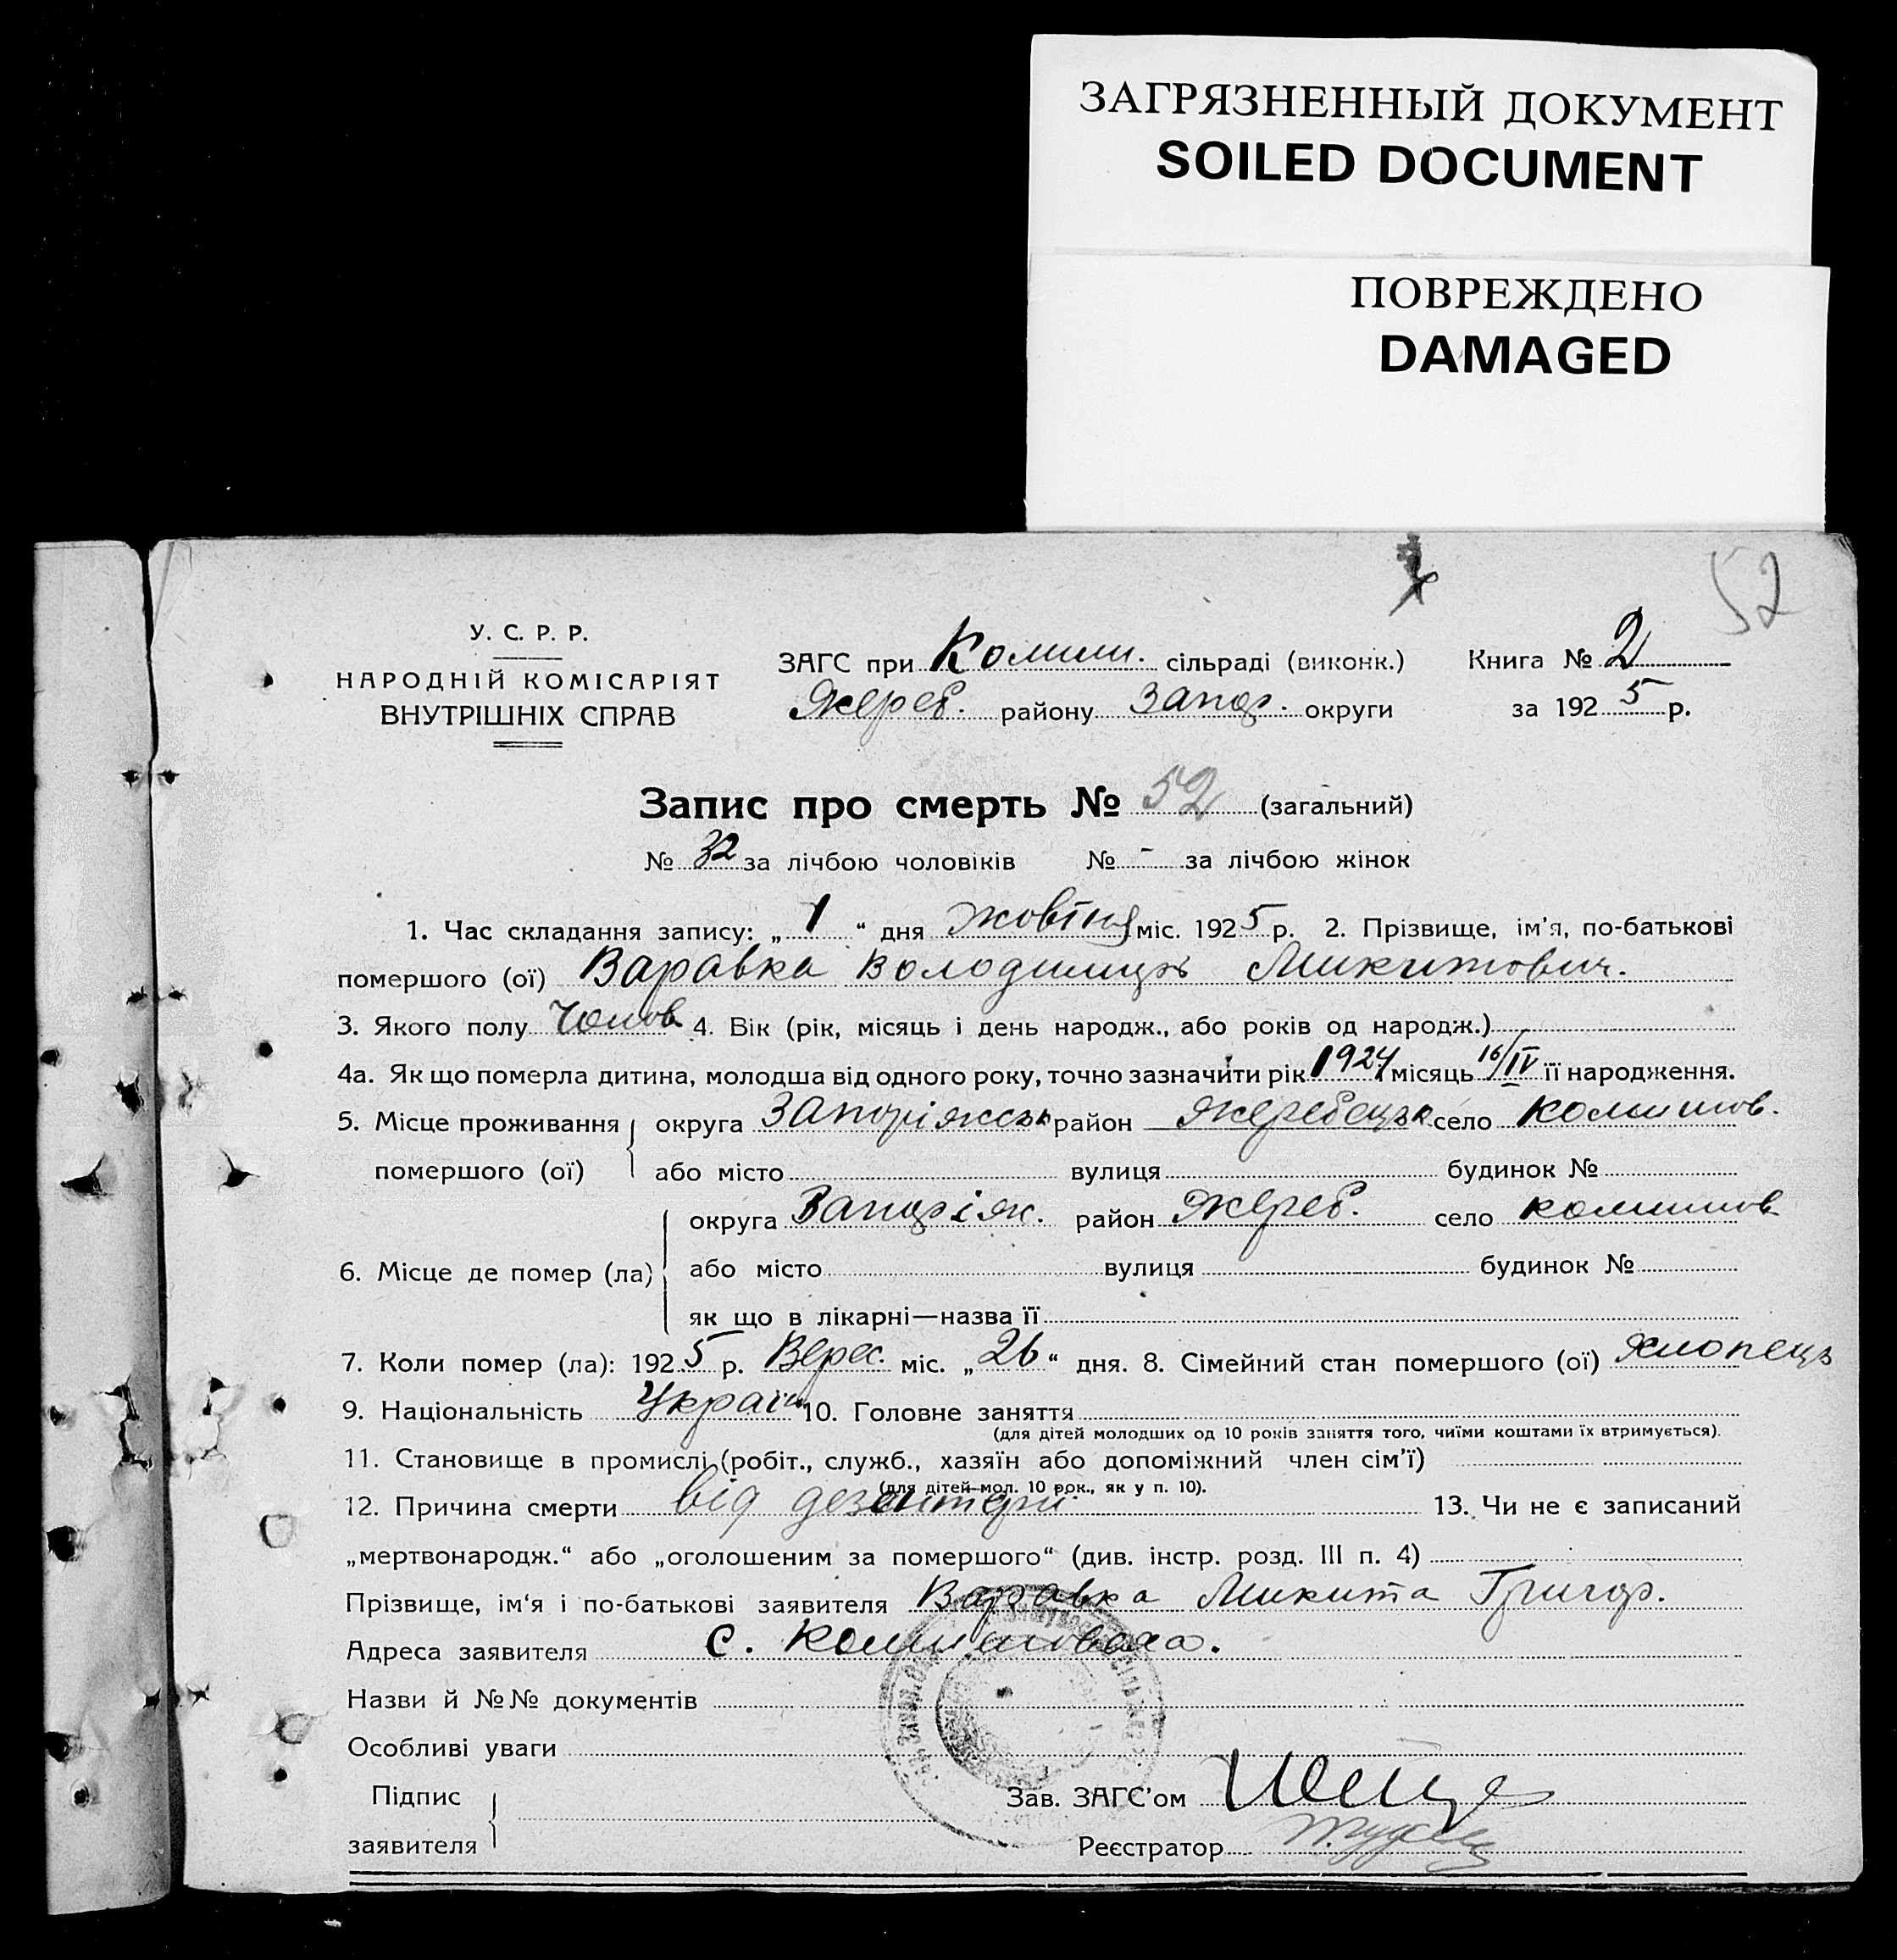 ЗАГРЯЗНЕННЫЙ ДОКУМЕНТ
SOILED DOCUMENT
ПОВРЕЖДЕНО
DAMAGED
52
У. С. Р. Р.
НАРОДНІЙ КОМІСАРІЯТ
ВНУТРІШНІХ СПРАВ
ЗАГС при Комиш. сільраді (виконк.) Книга № 2
Жереб. району Запор. округи за 1925 р.
Запис про смерть № 52 (загальний)
№ 32 за лічбою чоловіків № - за лічбою жінок
1. Час складання запису: „1“ дня жовтня міс. 1925 р. 2. Прізвище, ім'я, по-батькові
помершого (ої) Варавка Володимир Микитович.
3. Якого полу Чолов. 4. Вік (рік, місяць і день народж., або років од народж.)
4а. Як що померла дитина, молодша від одного року, точно зазначити рік 1924 місяць 16/IV її народження.
5. Місце проживання округа Запоріжськ район Жеребецьк село Комишов.
помершого (ої) або місто вулиця будинок №
округа Запоріж. район Жереб. село Комишов
6. Місце де помер (ла) або місто вулиця будинок №
як що в лікарні—назва її
7. Коли помер (ла): 1925 р. Верес. міс. „26“ дня. 8. Сімейний стан помершого (ої) хлопець
9. Національність Україн 10. Головне заняття
(для дітей молодших од 10 років заняття того, чиїми коштами їх втримується).
11. Становище в промислі (робіт., служб., хазяїн або допоміжний член сім'ї)
(для дітей мол. 10 рок., як у п. 10).
12. Причина смерти від дезентерії. 13. Чи не є записаний
„мертвонародж.“ або „оголошеним за помершого“ (див. інстр. розд. III п. 4)
Прізвище, ім'я і по-батькові заявителя Варавка Микита Григор.
Адреса заявителя с. Комишоваха.
Назви й №№ документів
Особливі уваги
Підпис Зав. ЗАГС'ом
заявителя Реєстратор